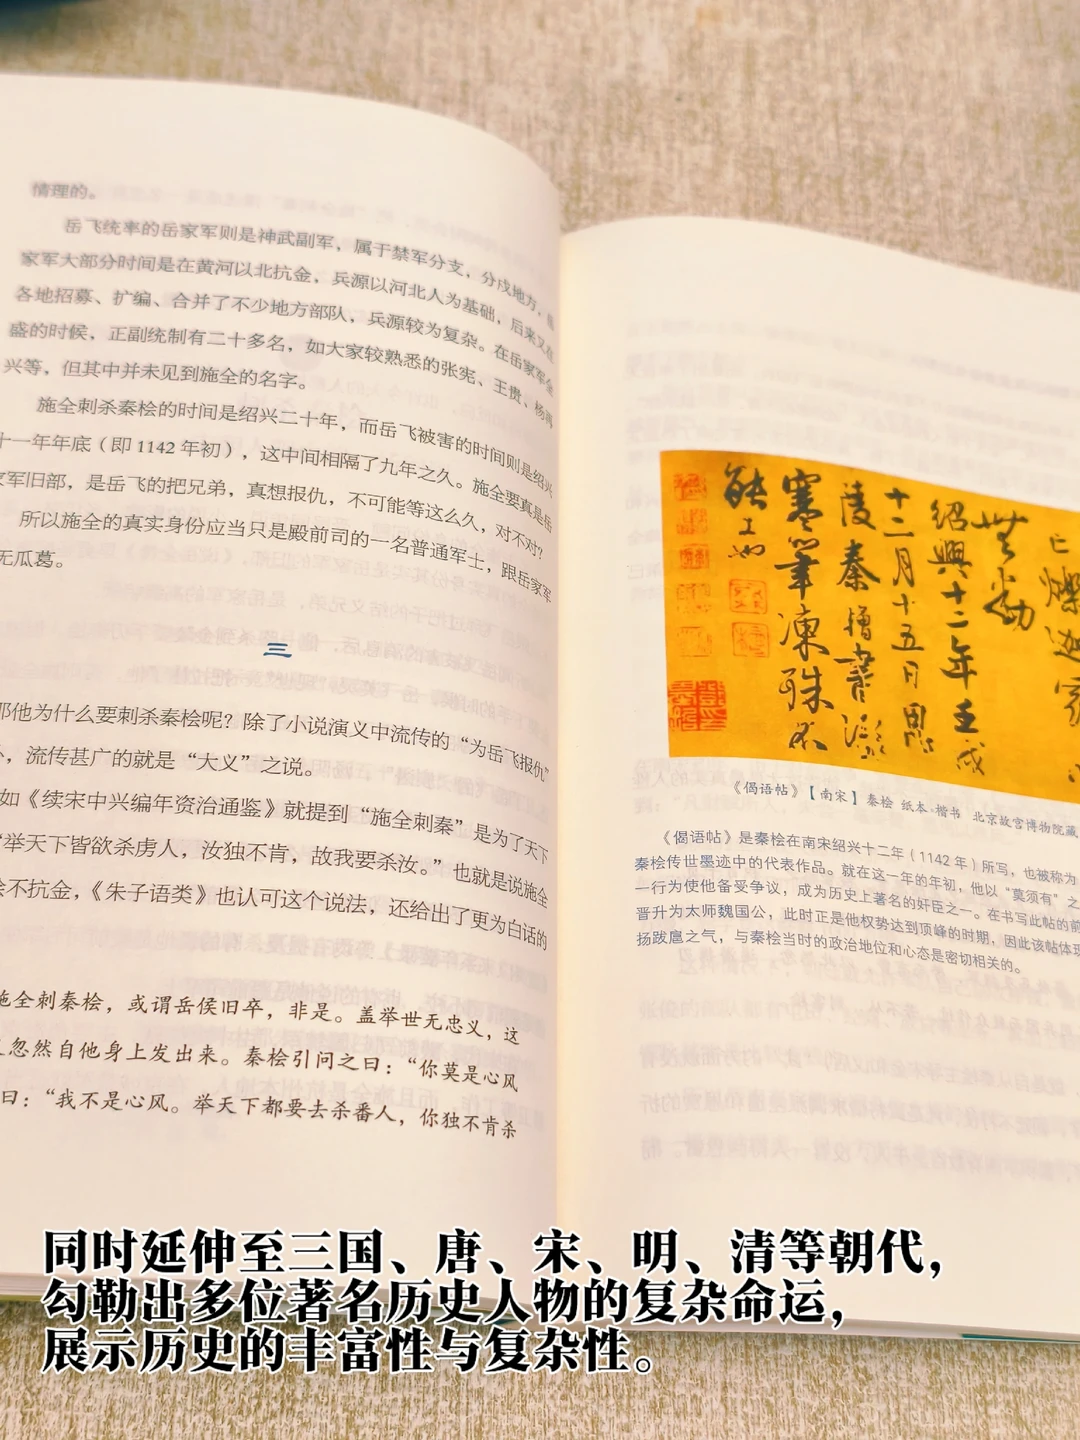 情理的。
岳飞统率的岳家军则是神武副军，属于禁军分支，分戍地方，
家军大部分时间是在黄河以北抗金，兵源以河北人为基础，后来又在
各地招募、扩编、合并了不少地方部队，兵源较为复杂。在岳家军全
盛的时候，正副统制有二十多名，如大家较熟悉的张宪、王贵、杨再
兴等，但其中并未见到施全的名字。
施全刺杀秦桧的时间是绍兴二十年，而岳飞被害的时间则是绍兴
十一年年底（即1142年初），这中间相隔了九年之久。施全要真是岳
家军旧部，是岳飞的把兄弟，真想报仇，不可能等这么久，对不对？
所以施全的真实身份应当只是殿前司的一名普通军士，跟岳家军
无瓜葛。
三
那他为什么要刺杀秦桧呢？除了小说演义中流传的“为岳飞报仇”
，流传甚广的就是“大义”之说。
如《续宋中兴编年资治通鉴》就提到“施全刺秦”是为了天下
“举天下皆欲杀虏人，汝独不肯，故我要杀汝。”也就是说施全
不抗金，《朱子语类》也认可这个说法，还给出了更为白话的
施全刺秦桧，或谓岳侯旧卒，非是。盖举世无忠义，这
忽然自他身上发出来。秦桧引问之曰：“你莫是心风
曰：“我不是心风。举天下都要去杀番人，你独不肯杀
无劫
绍兴十二年壬戌
十二月十五日思
陵秦桧书
寒笔冻殊不
能工也
《偈语帖》【南宋】秦桧 纸本·楷书 北京故宫博物院藏
《偈语帖》是秦桧在南宋绍兴十二年（1142年）所写，也被称为
秦桧传世墨迹中的代表作品。就在这一年的年初，他以“莫须有”之
一行为使他备受争议，成为历史上著名的奸臣之一。在书写此帖的前
晋升为太师魏国公，此时正是他权势达到顶峰的时期，因此该帖体现
扬跋扈之气，与秦桧当时的政治地位和心态是密切相关的。
同时延伸至三国、唐、宋、明、清等朝代，
勾勒出多位著名历史人物的复杂命运，
展示历史的丰富性与复杂性。